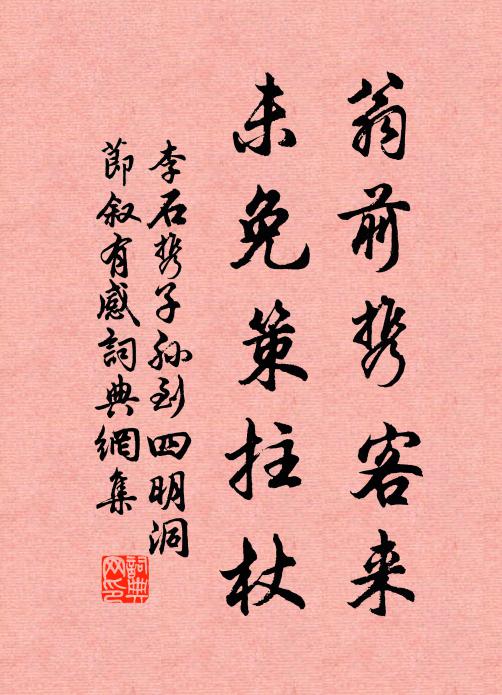 翁前携客来
未免策拄杖
李石携子孙到四明洞
节叙有感詞典網集
詞典
网印